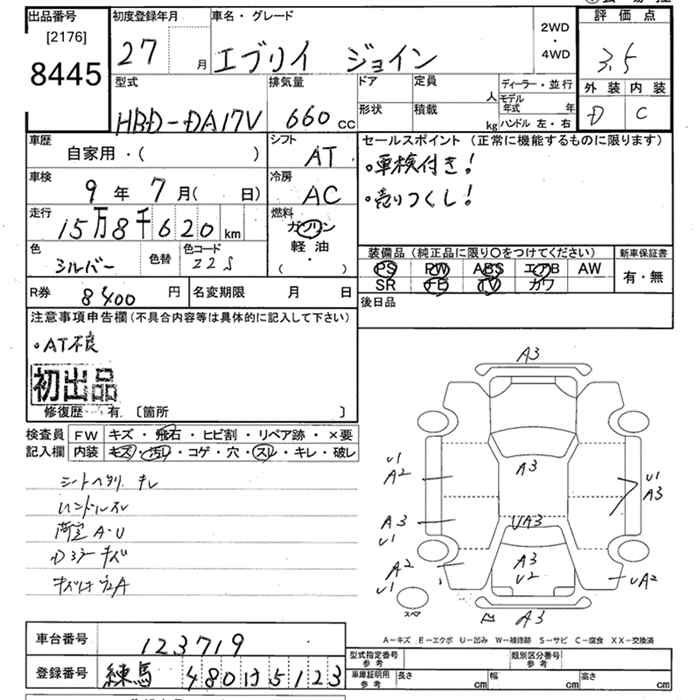 出品番号
[2176]
8445
初度登録年月
27 月
車名・グレード
エブリイ ジョイン
2WD
4WD
評価点
3.5
外装 内装
D C
型式
HBD-DA17V
排気量
660 cc
ドア
形状
定員
人
積載
kg
ディーラー・並行
モデル年式 年
ハンドル 左・右
車歴
自家用・( )
シフト
AT
車検
9年 7月( 日)
冷房
AC
走行
15万8千620 km
燃料
ガソリン
軽油
( )
色
シルバー
色替
色コード
Z2S
R券 8400 円
名変期限 月 日
セールスポイント (正常に機能するものに限ります)
・車検付き!
・売りつくし!
装備品 (純正品に限り〇をつけてください)
PS PW ABS エアB AW
SR FD TV カワ
新車保証書
有・無
後日品
注意事項申告欄 (不具合内容等は具体的に記入して下さい)
・AT不良
初出品
修復歴 有 [箇所 ]
検査員
記入欄
FW キズ・飛石・ヒビ割・リペア跡・×要
内装 キズ・汚レ・コゲ・穴・スレ・キレ・破レ
ハンドルスレ
A3
A3
U1
A2
A3
U1
U1
A3
UA3
A3
U2
A2
U1
UA2
A3
スペア
A-キズ E-エクボ U-凹み W-補修跡 S-サビ C-腐食 XX-交換済
車台番号 123719
登録番号 練馬 480 け 5123
型式指定番号
参考
類別区分番号
参考
車庫証明用
参考
長さ cm
幅 cm
高さ cm